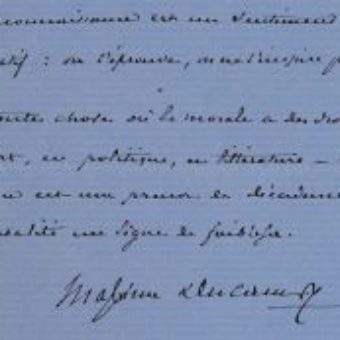 connaissance est un sentiment
atif : on l'éprouve, on ne l'inspire p
toutes chose où la morale a des dro
rt, en politique, en littérature –
est une preuve de décadence
une signe de faiblesse.
Maxime Du Camp